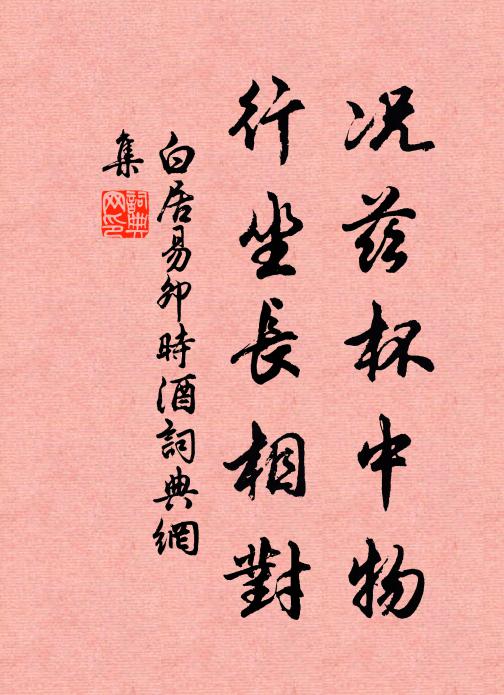 况茲杯中物
行坐長相對
白居易卯時酒詞典網
集
詞典
网印